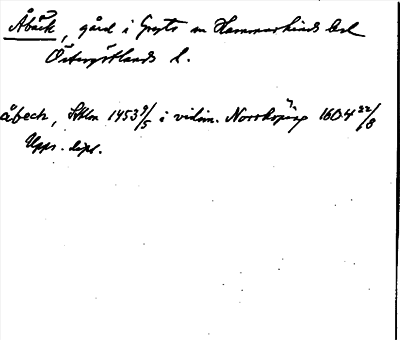 Åbäck, gård i Gryts sn Hammarkinds hd
Östergötlands l.
åbeck, Sthlm 1453 9/5 i vidim. Norrköping 1604 22/8
Upps. dipl.